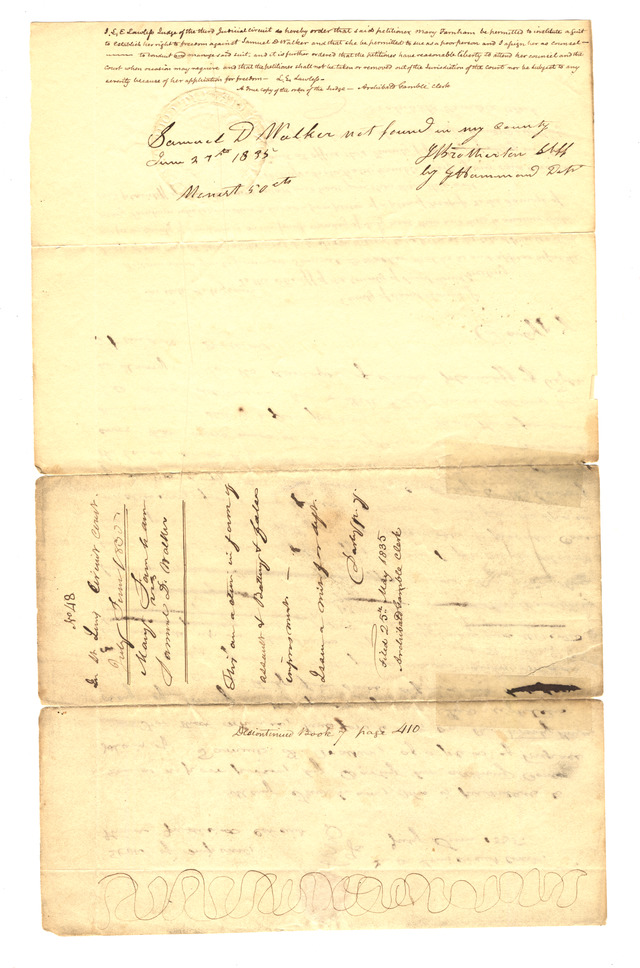 I, L, E Lawless Judge of the third Judicial circuit do hereby order that said petitioner Mary Farnham be permitted to institute a suit
to establish her right to freedom against Samuel D Walker and that she be permitted to sue as a poor person and I assign her as counsel
to conduct and manage said suit, and it is further ordered that the petitioner have reasonable liberty to attend her counsel and the
Court when occasion may require and that the petitioner shall not be taken or removed out of the Jurisdiction of the court nor be subject to any
severity because of her application for freedom — L, E, Lawless —
A true copy of the order of the Judge — Archibald Gamble Clerk
Samuel D Walker not found in my County
June 27th 1835
J Brotherton Shff
by G Hammond Dept
Nonest 50 cts
No 48
In St Louis Circuit Court.
July Term 1835
Mary Farnham
vs
Samuel D. Walker
This an action in form of
assault & Battery & false
imprisonment —
Issue a writ for deft
filed 25th May 1835
Archibald Gamble Clerk
Discontinued Book 7 page 410